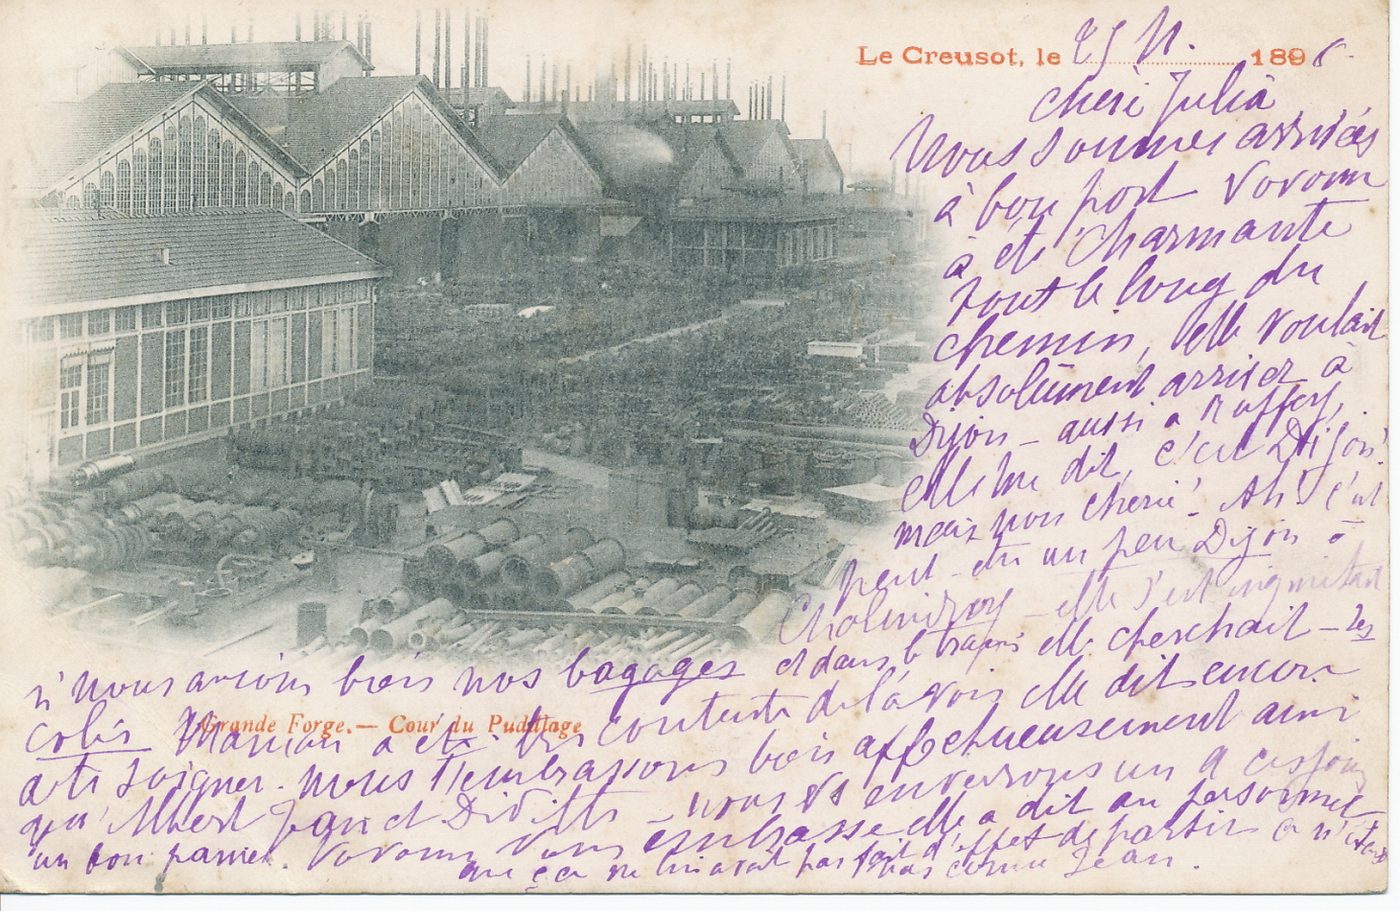 Le Creusot, le 25 N. 1896
cheré Julia
Nous sommes arrivés
à bon port Vovonn
à été charmante
tout le long du
chemin, elle voulait
absolument arriver à
Dijon - aussi a Ruffey,
elle me dit, c'est Dijon!
mais non cherié! Ah! c'est
peut-etr un peu Dijon à
Chalindrey - elle s'est inquiétait
si nous avions bien nos bagages et dans le train elle cherchait - les
colis Maman a été très contente de la voir elle dit encore
Grande Forge. — Cour du Pudlage
a te soigner. nous t'embrassons bien affectueusement ainsi
qu'Albert Jean et - nous vs enverrons un 9 ces jours
un bon panier. Vovonn vous embrasse elle a dit au personne
que ça ne lui avait pas fait d'effet de partir
pas comme Jean.